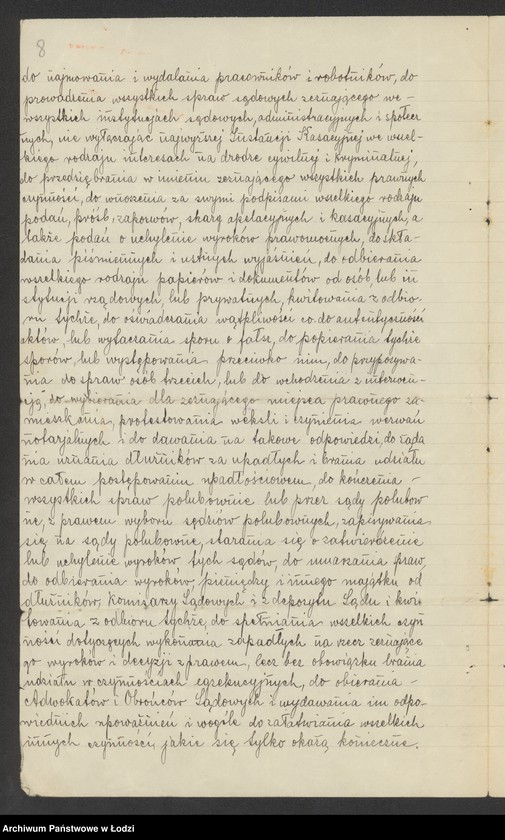 8
do najmowania i wydalania pracowników i robotników, do
prowadzenia wszystkich spraw sądowych zeznającego we -
wszystkich instytucjach sądowych, administracyjnych i społecz
nych, nie wyłączając najwyższej Instancji Kasacyjnej we wszel-
kiego rodzaju interesach na drodze cywilnej i kryminalnej,
do przedsiębrania w imieniu zeznającego wszystkich prawnych
czynności, do wnoszenia za swymi podpisami wszelkiego rodzaju
podań, próśb, zapozwów, skarg apelacyjnych i kasacyjnych, a
także podań o uchylenie wyroków prawomocnych, do skła-
dania piśmiennych i ustnych wyjaśnień, do odbierania
wszelkiego rodzaju papierów i dokumentów od osób, lub in
stytucji rządowych, lub prywatnych, kwitowania z odbio-
ru tychże, do oświadczania wątpliwości co do autentyczności
aktów, lub wytaczania sporu o fałsz, do popierania tychże
sporów, lub występowania przeciwko nim, do przypozywa-
nia do spraw osób trzecich, lub do wchodzenia z interwen-
cją, do wybierania dla zeznającego miejsca prawnego za-
mieszkania, protestowania weksli i czynienia wezwań
notarjalnych i do dawania na takowe odpowiedzi, do żąda
nia uznania dłużników za upadłych i brania udziału
w całem postępowaniu upadłościowem, do kończenia -
wszystkich spraw polubownie lub przez sądy polubow
ne, z prawem wyboru sędziów polubownych, zapisywania
się na sądy polubowne, starania się o zatwierdzenie
lub uchylenie wyroków tych sądów, do umarzania spraw,
do odbierania wyroków, pieniędzy i innego majątku od
dłużników, Komisarzy Sądowych i z depozytu Sądu i kwi
towania z odbioru tychże, do spełniania wszelkich czyn
ności dotyczących wykonania zapadłych na rzecz zeznające
go wyroków i decyzji z prawem, lecz bez obowiązku brania
udziału w czynnościach egzekucyjnych, do obierania -
Adwokatów i Obrońców Sądowych i wydawania im odpo-
wiednich upoważnień i wogóle do załatwiania wszelkich
innych czynności, jakie się tylko okażą konieczne.
Archiwum Państwowe w Łodzi